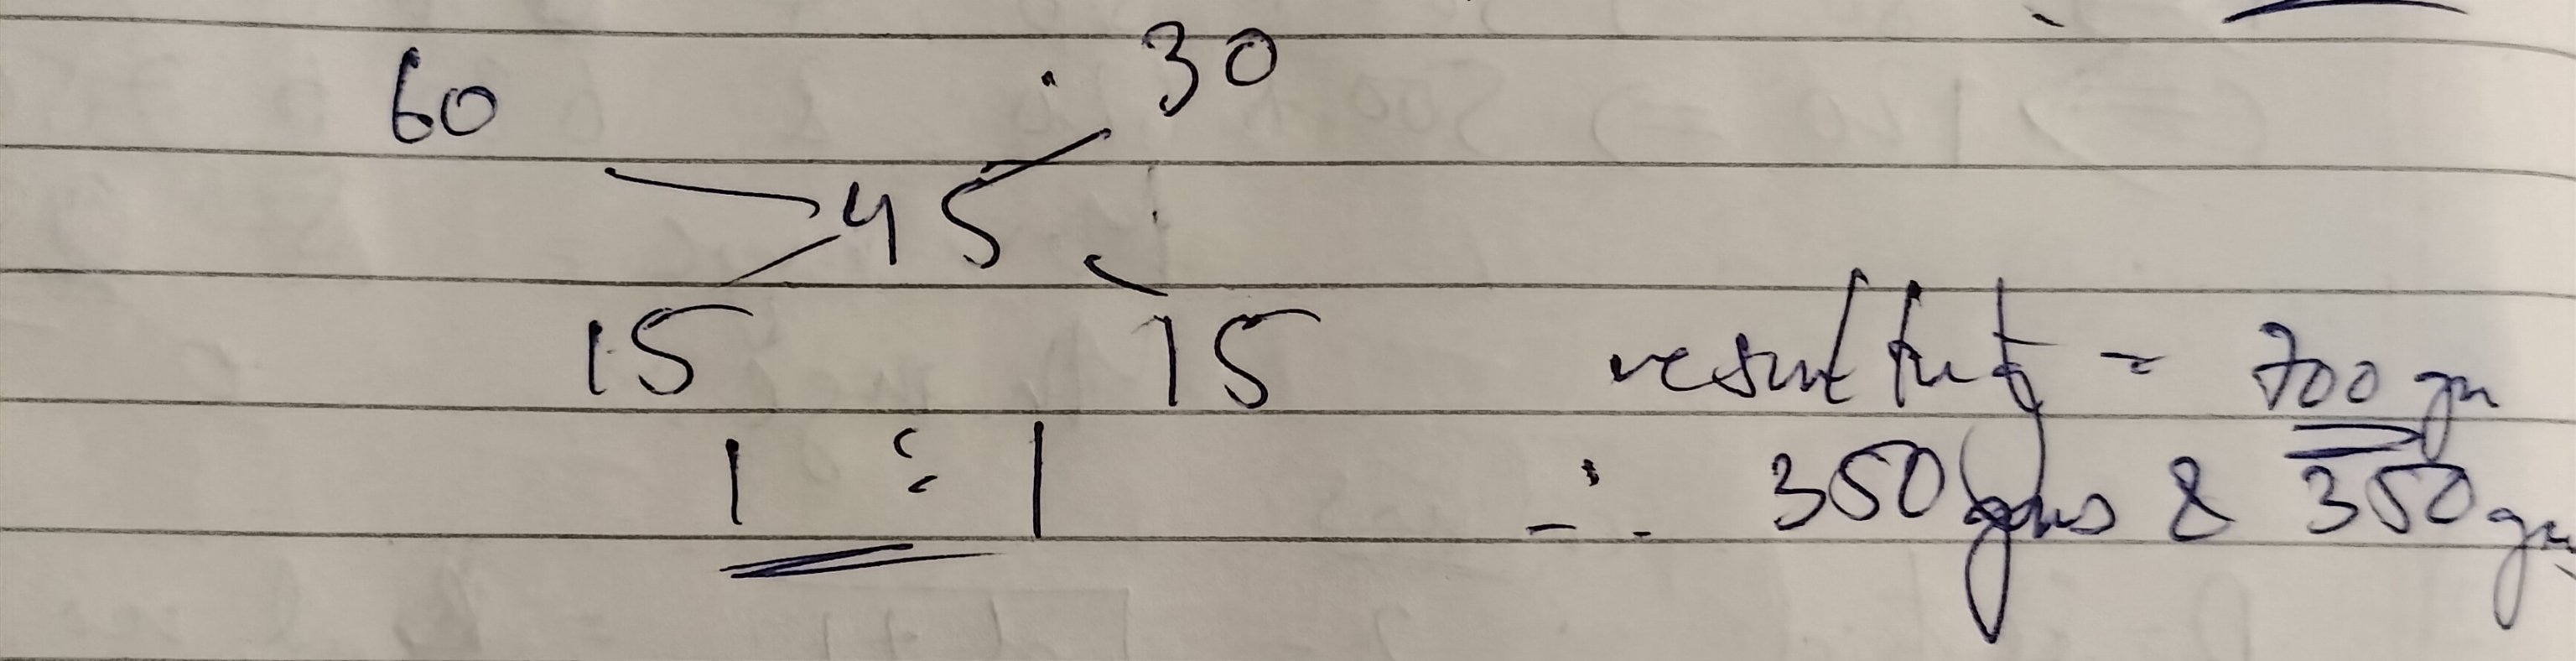 60 30
45
15 15
resultant = 700 gm
1 : 1 ∴ 350 gms & 350 gm